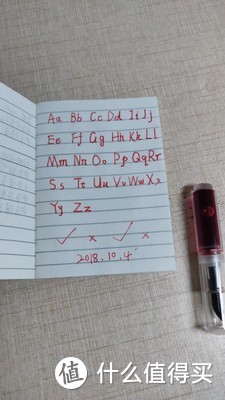 Aa Bb Cc Dd Ii Jj
Ee Ff Gg Hh Kk Ll
Mm Nn Oo Pp Qq Rr
Ss Tt Uu Vv Ww Xx
Yy Zz
✓ × ✓ ×
2018.10.4
值 什么值得买